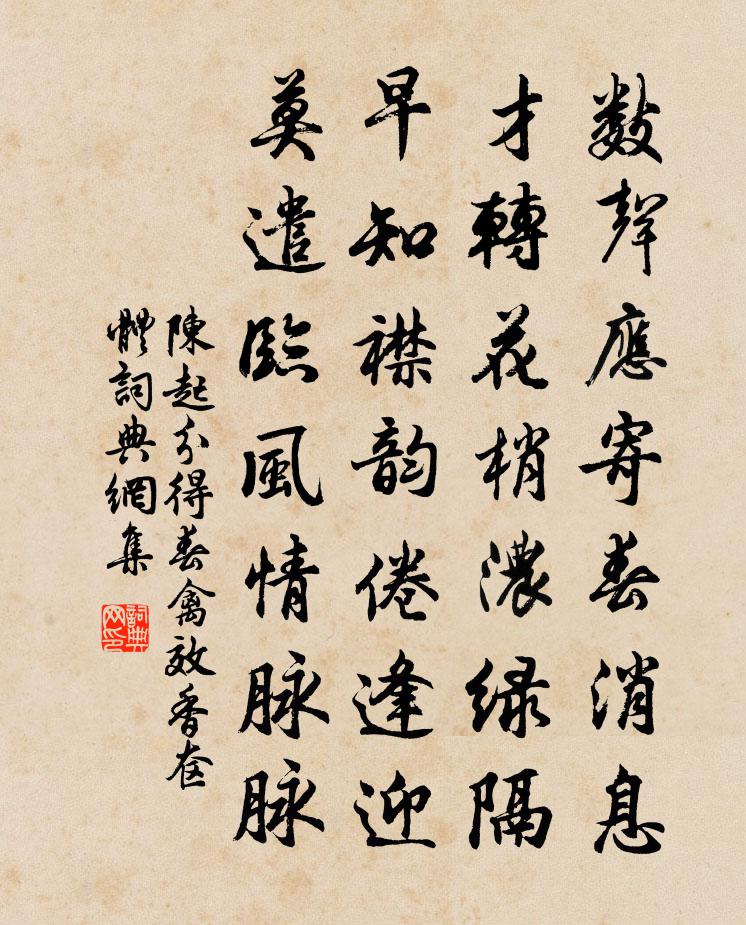 數聲應寄春消息
才轉花梢濃綠隔
早知襟韵倦逢迎
莫遣臨風情脉脉
陳起分得春禽效香奩
體詞典網集
詞典網印